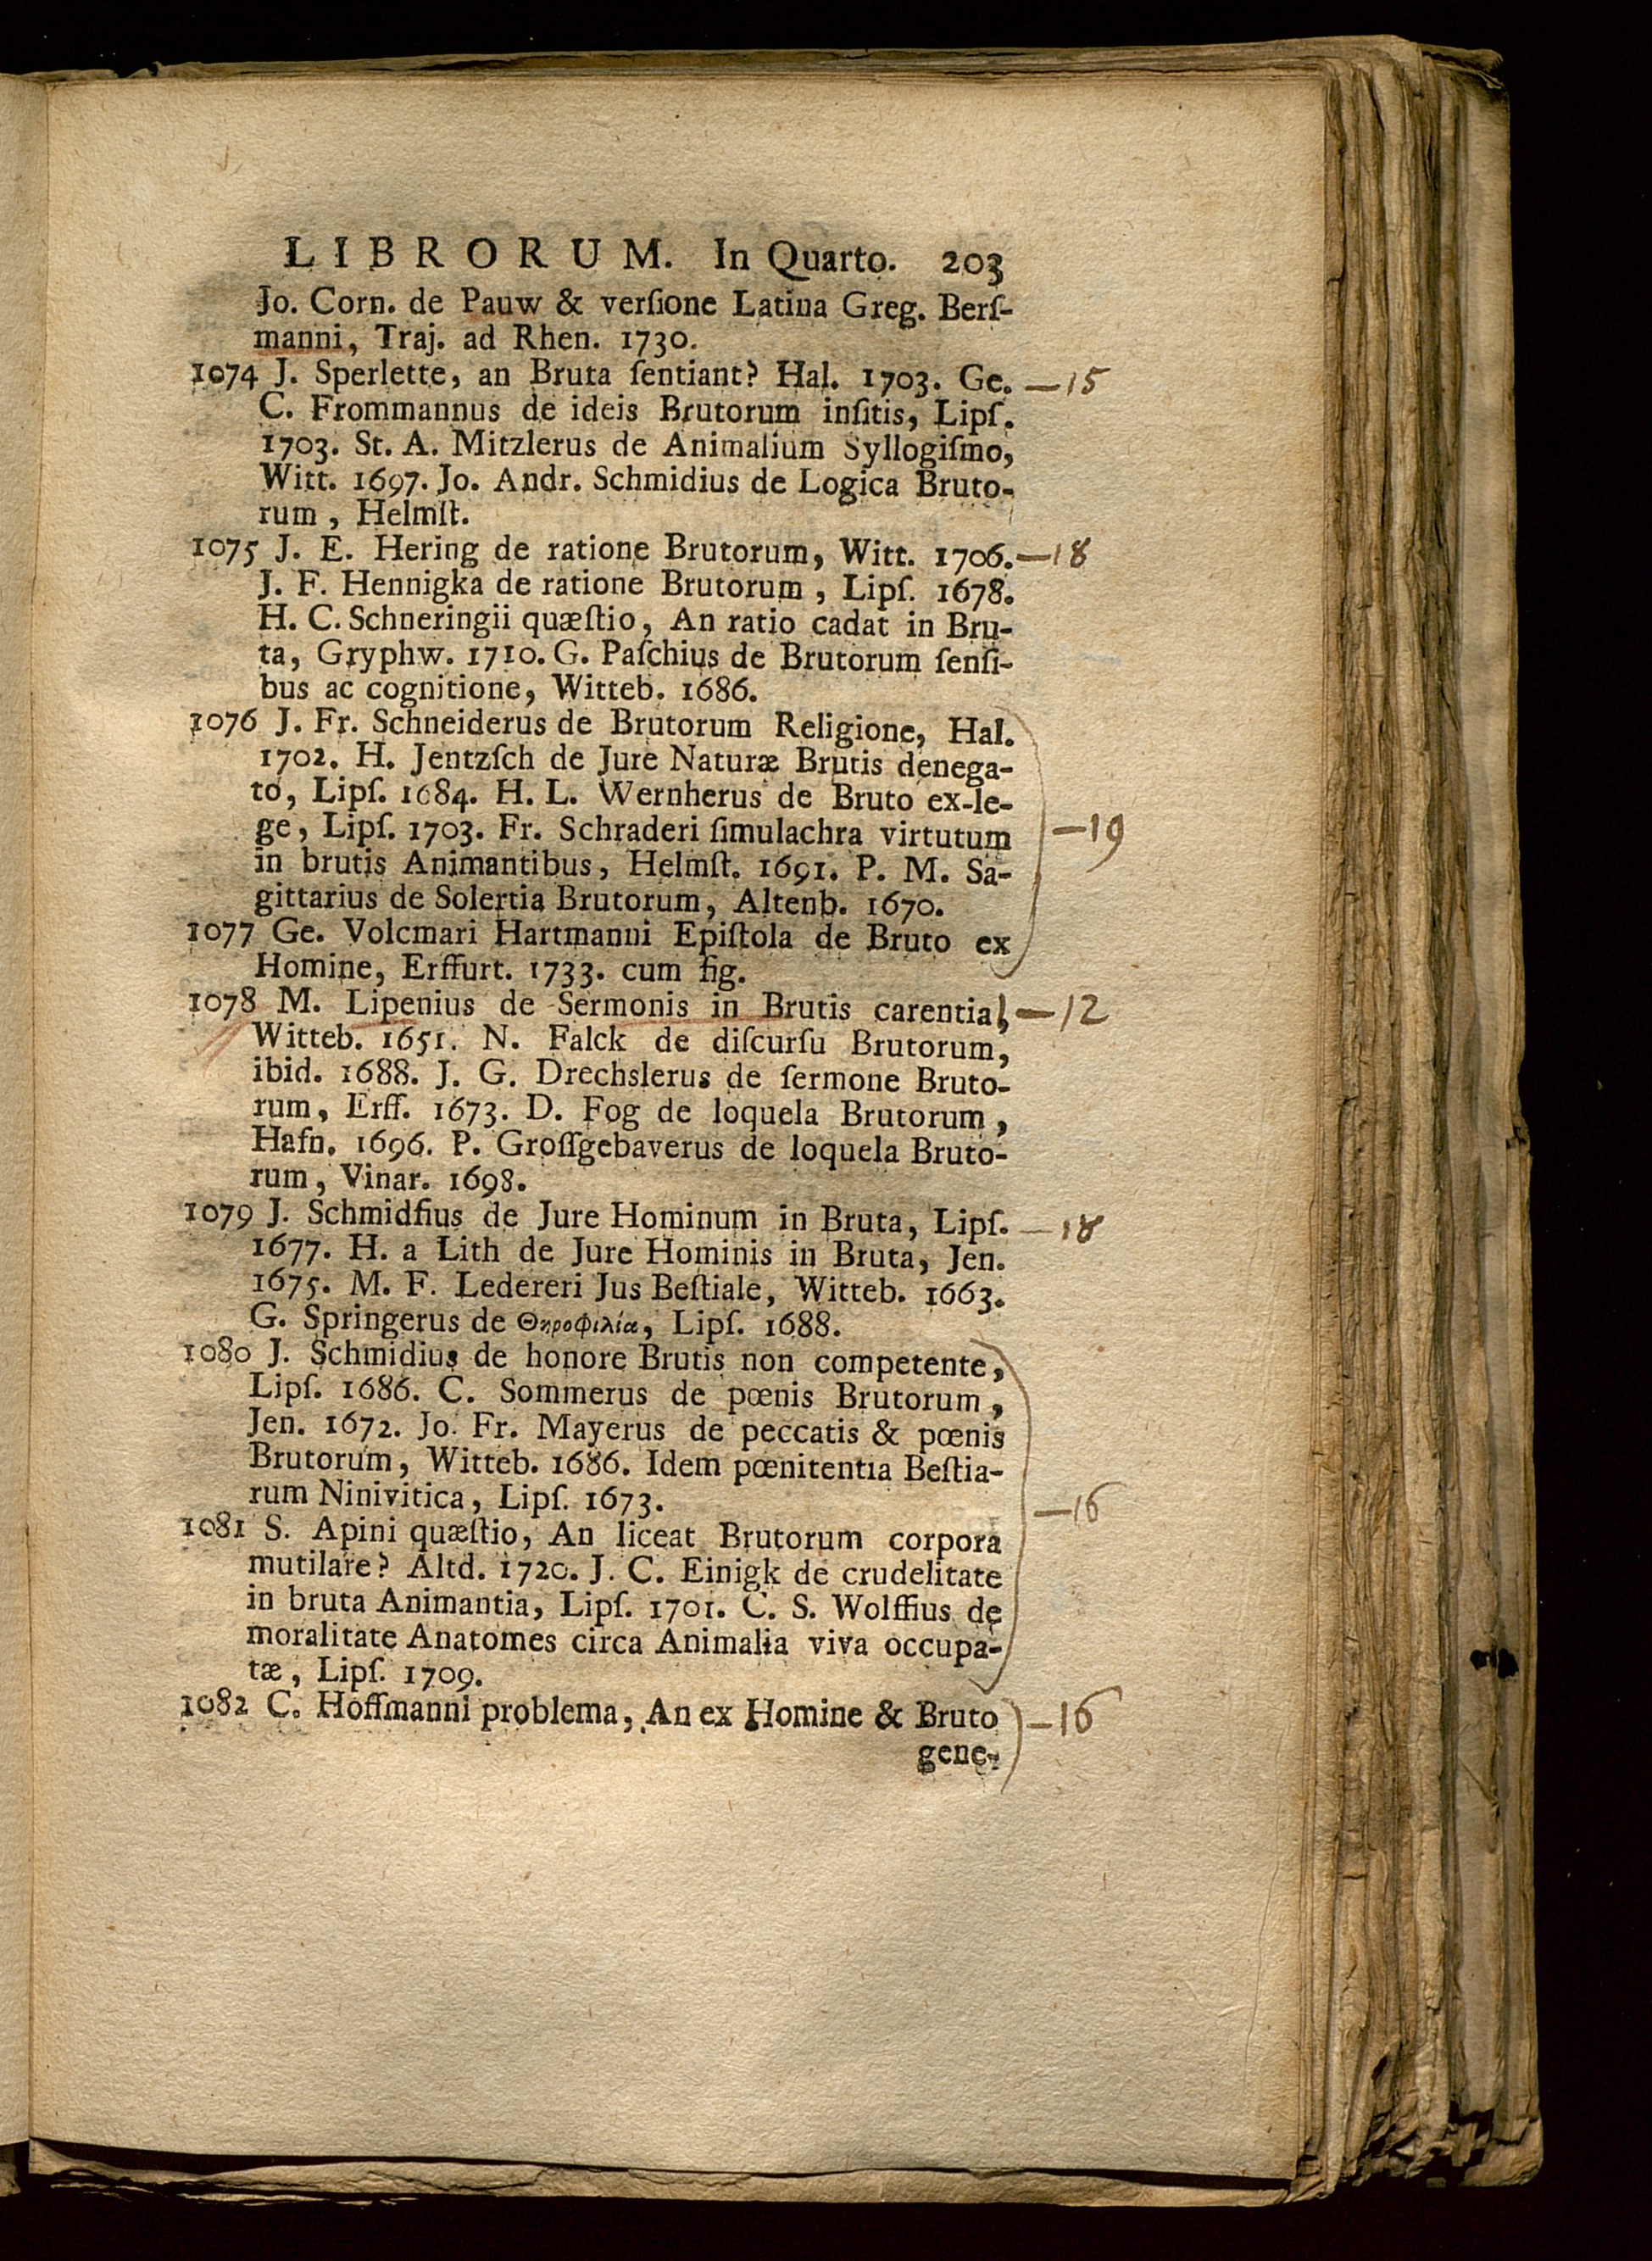 LIBRORUM. In Quarto. 203
Jo. Corn. de Pauw & verſione Latina Greg. Berſ-
manni, Traj. ad Rhen. 1730.
1074 J. Sperlette, an Bruta ſentiant? Hal. 1703. Ge. —15
C. Frommannus de ideis Brutorum inſitis, Lipſ.
1703. St. A. Mitzlerus de Animalium Syllogiſmo,
Witt. 1697. Jo. Andr. Schmidius de Logica Bruto-
rum, Helmſt.
1075 J. E. Hering de ratione Brutorum, Witt. 1706. —18
J. F. Hennigka de ratione Brutorum, Lipſ. 1678.
H. C. Schneringii quæſtio, An ratio cadat in Bru-
ta, Gryphw. 1710. G. Paſchius de Brutorum ſenſi-
bus ac cognitione, Witteb. 1686.
1076 J. Fr. Schneiderus de Brutorum Religione, Hal.
1702. H. Jentzſch de Jure Naturæ Brutis denega-
to, Lipſ. 1684. H. L. Wernherus de Bruto ex-le-
ge, Lipſ. 1703. Fr. Schraderi ſimulachra virtutum —19
in brutis Animantibus, Helmſt. 1691. P. M. Sa-
gittarius de Solertia Brutorum, Altenb. 1670.
1077 Ge. Volcmari Hartmanni Epiſtola de Bruto ex
Homine, Erffurt. 1733. cum fig.
1078 M. Lipenius de Sermonis in Brutis carentia, —12
Witteb. 1651. N. Falck de diſcurſu Brutorum,
ibid. 1688. J. G. Drechslerus de ſermone Bruto-
rum, Erff. 1673. D. Fog de loquela Brutorum,
Hafn. 1696. P. Groſſgebaverus de loquela Bruto-
rum, Vinar. 1698.
1079 J. Schmidſius de Jure Hominum in Bruta, Lipſ. —18
1677. H. a Lith de Jure Hominis in Bruta, Jen.
1675. M. F. Ledereri Jus Beſtiale, Witteb. 1663.
G. Springerus de Θηροφιλία, Lipſ. 1688.
1080 J. Schmidius de honore Brutis non competente,
Lipſ. 1686. C. Sommerus de pœnis Brutorum,
Jen. 1672. Jo. Fr. Mayerus de peccatis & pœnis
Brutorum, Witteb. 1686. Idem pœnitentia Beſtia-
rum Ninivitica, Lipſ. 1673. —16
1081 S. Apini quæſtio, An liceat Brutorum corpora
mutilare? Altd. 1720. J. C. Einigk de crudelitate
in bruta Animantia, Lipſ. 1701. C. S. Wolffius de
moralitate Anatomes circa Animalia viva occupa-
tæ, Lipſ. 1709.
1082 C. Hoffmanni problema, An ex Homine & Bruto —16
gene-